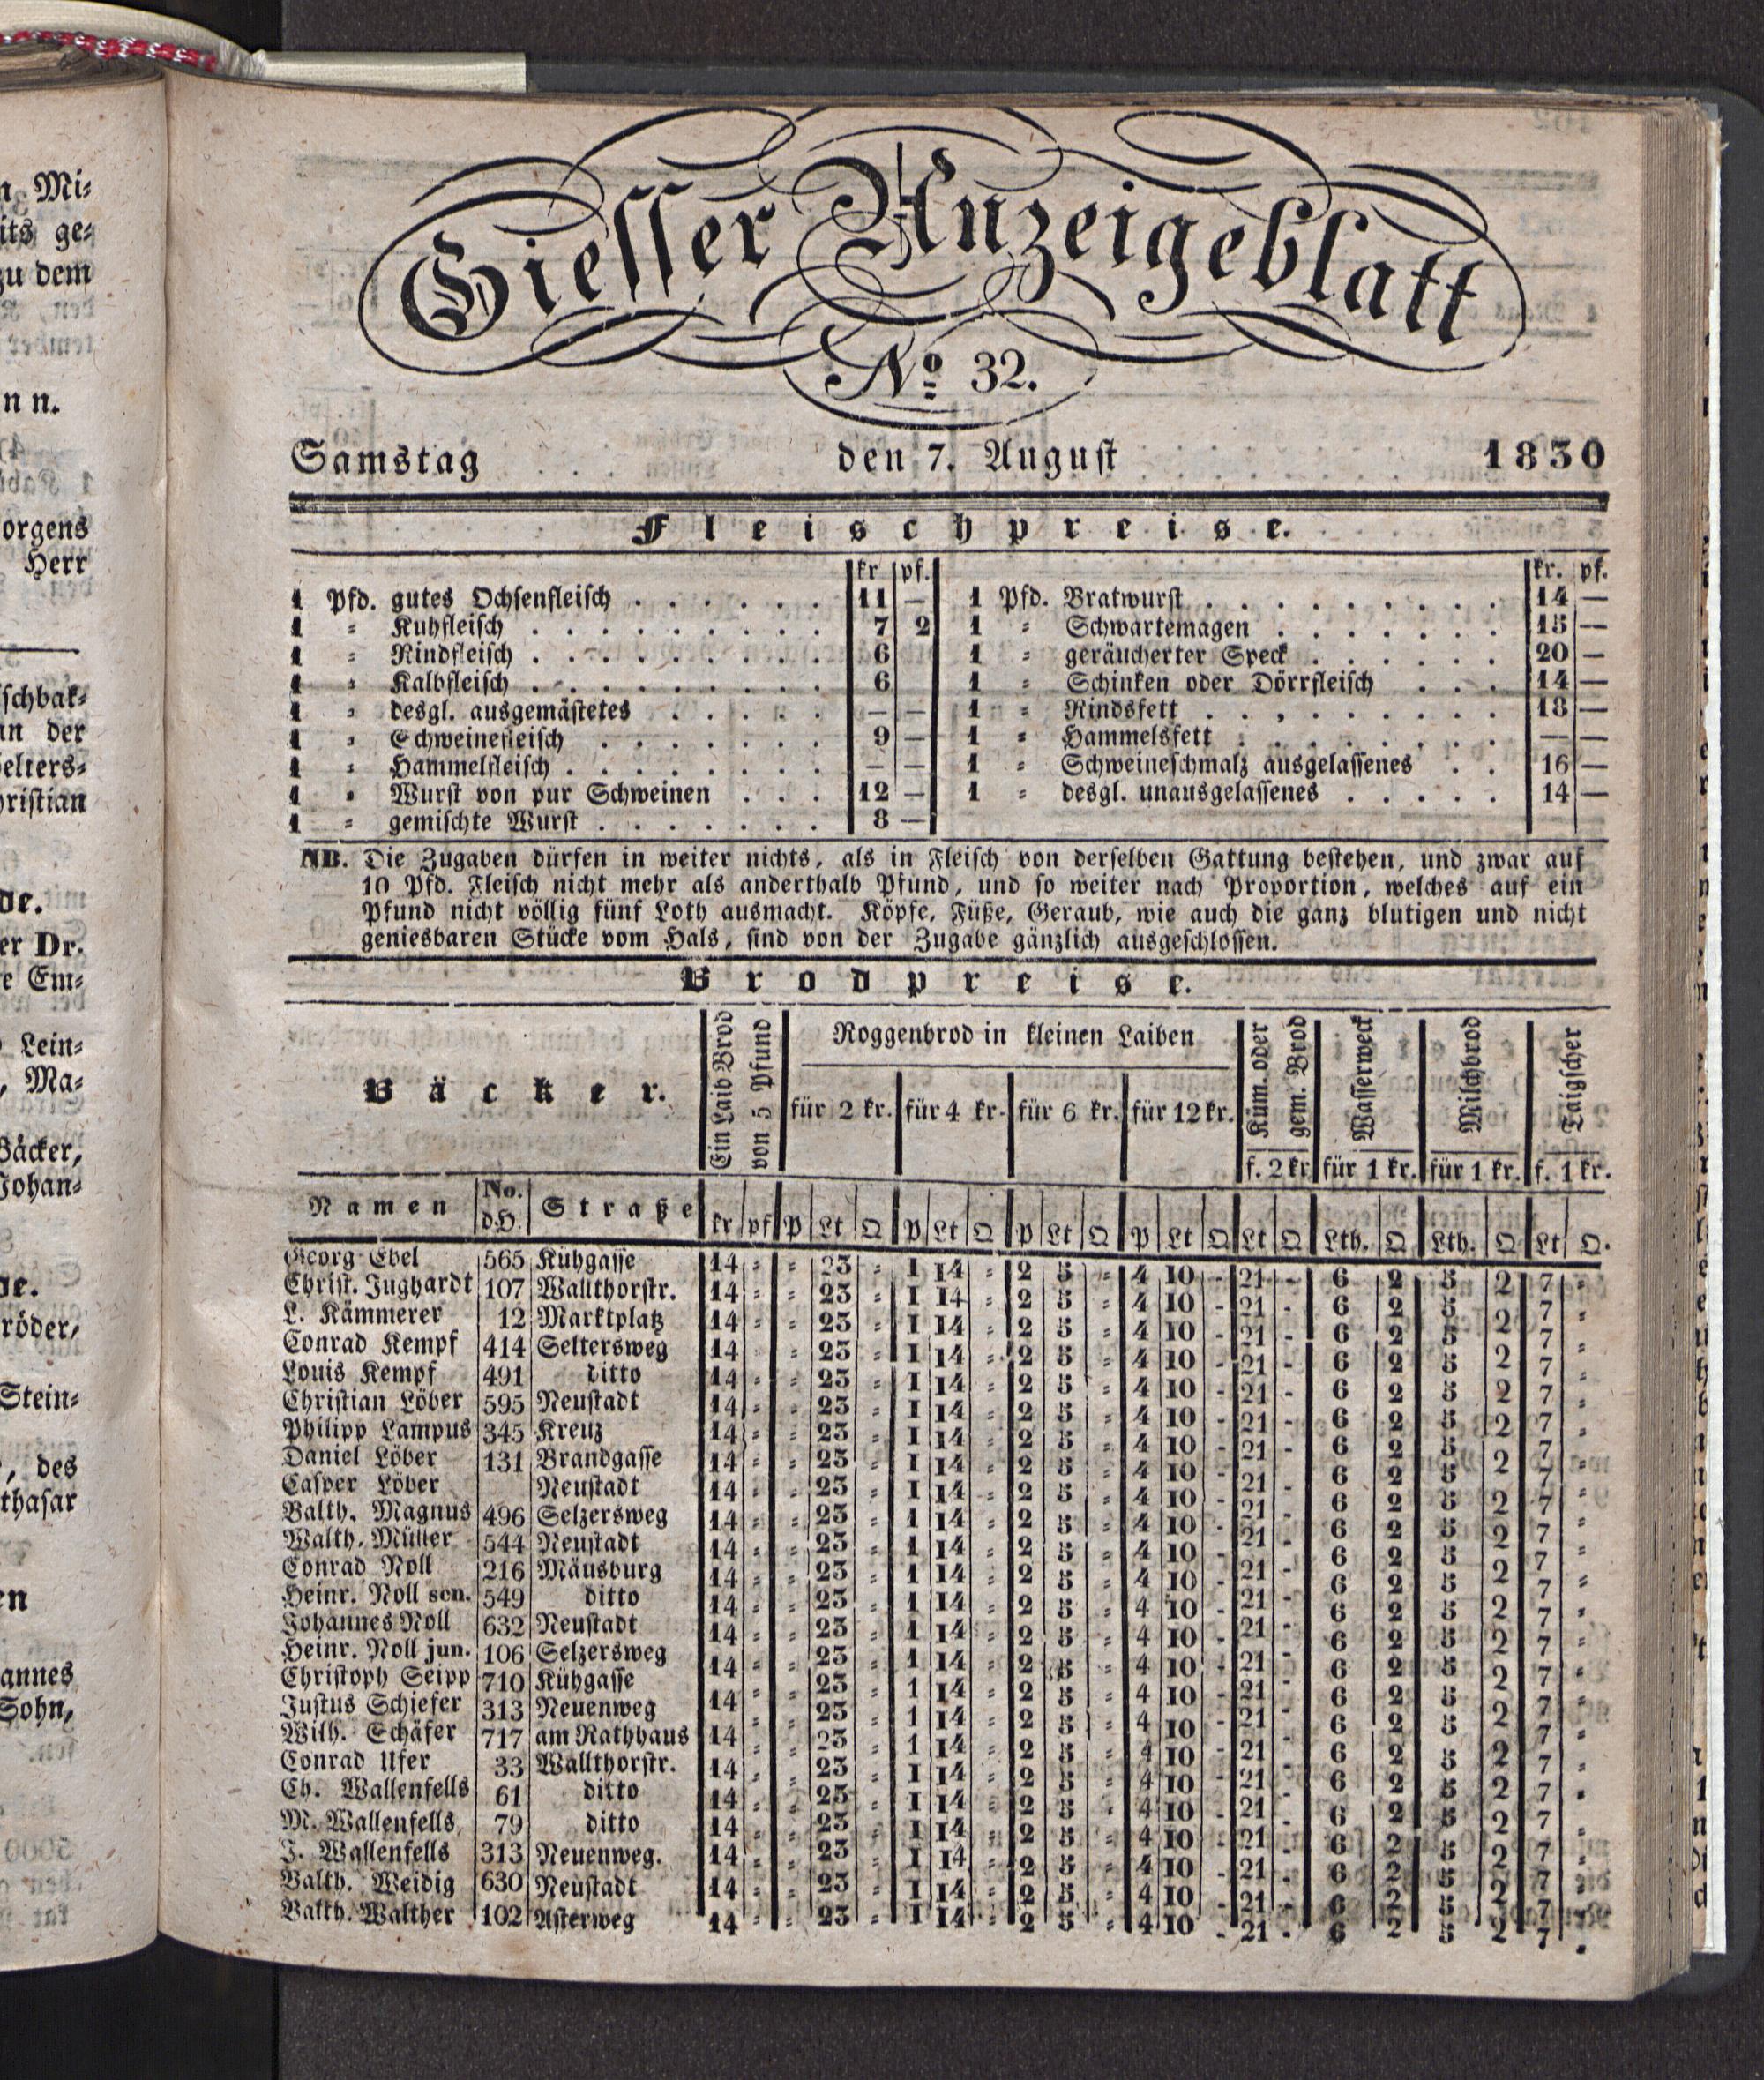 Giesser Anzeigeblatt
No 32.
Samstag den 7. August 1830
Fleischpreise.
kr pf. kr. pf.
1 Pfd. gutes Ochsenfleisch . . . . . . 11 — 1 Pfd. Bratwurst . . . . . . . . . 14 —
1 = Kuhfleisch . . . . . . . . . 7 2 1 = Schwartemagen . . . . . . . 15 —
1 = Rindfleisch . . . . . . . . . 6 1 = geräucherter Speck . . . . . . 20 —
1 = Kalbfleisch . . . . . . . . . 6 1 = Schinken oder Dörrfleisch . . . 14 —
1 = desgl. ausgemästetes . . . . . — — 1 = Rindsfett . . . . . . . . . 18 —
1 = Schweinefleisch . . . . . . . 9 — 1 = Hammelsfett . . . . . . . . — —
1 = Hammelfleisch . . . . . . . . — — 1 = Schweineschmalz ausgelassenes . . 16 —
1 = Wurst von pur Schweinen . . . 12 — 1 = desgl. unausgelassenes . . . . . 14 —
1 = gemischte Wurst . . . . . . . 8 —
NB. Die Zugaben dürfen in weiter nichts, als in Fleisch von derselben Gattung bestehen, und zwar auf
10 Pfd. Fleisch nicht mehr als anderthalb Pfund, und so weiter nach Proportion, welches auf ein
Pfund nicht völlig fünf Loth ausmacht. Köpfe, Füße, Geraub, wie auch die ganz blutigen und nicht
geniesbaren Stücke vom Hals, sind von der Zugabe gänzlich ausgeschlossen.
Brodpreise.
Bäcker.
Ein Laib Brod
von 5 Pfund
Roggenbrod in kleinen Laiben
für 2 kr. für 4 kr. für 6 kr. für 12 kr.
Küm. oder
gem. Brod
f. 2 kr
Wasserweck
für 1 kr.
Milchbrod
für 1 kr.
Taigscher
f. 1 kr.
Namen No. d.H. Straße kr pf P Lt Q P Lt Q P Lt Q P Lt Q Lt Q Lth. Q Lth. Q Lt Q.
Georg Ebel 565 Kühgasse 14 = = 23 = 1 14 = 2 5 = 4 10 - 21 - 6 2 5 2 7 =
Christ. Jughardt 107 Wallthorstr. 14 = = 23 = 1 14 = 2 5 = 4 10 - 21 - 6 2 5 2 7 =
L. Kämmerer 12 Marktplatz 14 = = 23 = 1 14 = 2 5 = 4 10 - 21 - 6 2 5 2 7 =
Conrad Kempf 414 Seltersweg 14 = = 23 = 1 14 = 2 5 = 4 10 - 21 - 6 2 5 2 7 =
Louis Kempf 491 ditto 14 = = 23 = 1 14 = 2 5 = 4 10 - 21 - 6 2 5 2 7 =
Christian Löber 595 Neustadt 14 = = 23 = 1 14 = 2 5 = 4 10 - 21 - 6 2 5 2 7 =
Philipp Lampus 345 Kreuz 14 = = 23 = 1 14 = 2 5 = 4 10 - 21 - 6 2 5 2 7 =
Daniel Löber 131 Brandgasse 14 = = 23 = 1 14 = 2 5 = 4 10 - 21 - 6 2 5 2 7 =
Casper Löber Neustadt 14 = = 23 = 1 14 = 2 5 = 4 10 - 21 - 6 2 5 2 7 =
Balth. Magnus 496 Selzersweg 14 = = 23 = 1 14 = 2 5 = 4 10 - 21 - 6 2 5 2 7 =
Walth. Müller 544 Neustadt 14 = = 23 = 1 14 = 2 5 = 4 10 - 21 - 6 2 5 2 7 =
Conrad Noll 216 Mäusburg 14 = = 23 = 1 14 = 2 5 = 4 10 - 21 - 6 2 5 2 7 =
Heinr. Noll sen. 549 ditto 14 = = 23 = 1 14 = 2 5 = 4 10 - 21 - 6 2 5 2 7 =
Johannes Noll 632 Neustadt 14 = = 23 = 1 14 = 2 5 = 4 10 - 21 - 6 2 5 2 7 =
Heinr. Noll jun. 106 Selzersweg 14 = = 23 = 1 14 = 2 5 = 4 10 - 21 - 6 2 5 2 7 =
Christoph Seipp 710 Kühgasse 14 = = 23 = 1 14 = 2 5 = 4 10 - 21 - 6 2 5 2 7 =
Justus Schiefer 313 Neuenweg 14 = = 23 = 1 14 = 2 5 = 4 10 - 21 - 6 2 5 2 7 =
Wilh. Schäfer 717 am Rathhaus 14 = = 23 = 1 14 = 2 5 = 4 10 - 21 - 6 2 5 2 7 =
Conrad Ufer 33 Wallthorstr. 14 = = 23 = 1 14 = 2 5 = 4 10 - 21 - 6 2 5 2 7 =
Ch. Wallenfells 61 ditto 14 = = 23 = 1 14 = 2 5 = 4 10 - 21 - 6 2 5 2 7 =
M. Wallenfells 79 ditto 14 = = 23 = 1 14 = 2 5 = 4 10 - 21 - 6 2 5 2 7 =
J. Wallenfells 313 Neuenweg. 14 = = 23 = 1 14 = 2 5 = 4 10 - 21 - 6 2 5 2 7 =
Balth. Weidig 630 Neustadt 14 = = 23 = 1 14 = 2 5 = 4 10 - 21 - 6 2 5 2 7 =
Balth. Walther 102 Asterweg 14 = = 23 = 1 14 = 2 5 = 4 10 - 21 - 6 2 5 2 7 =